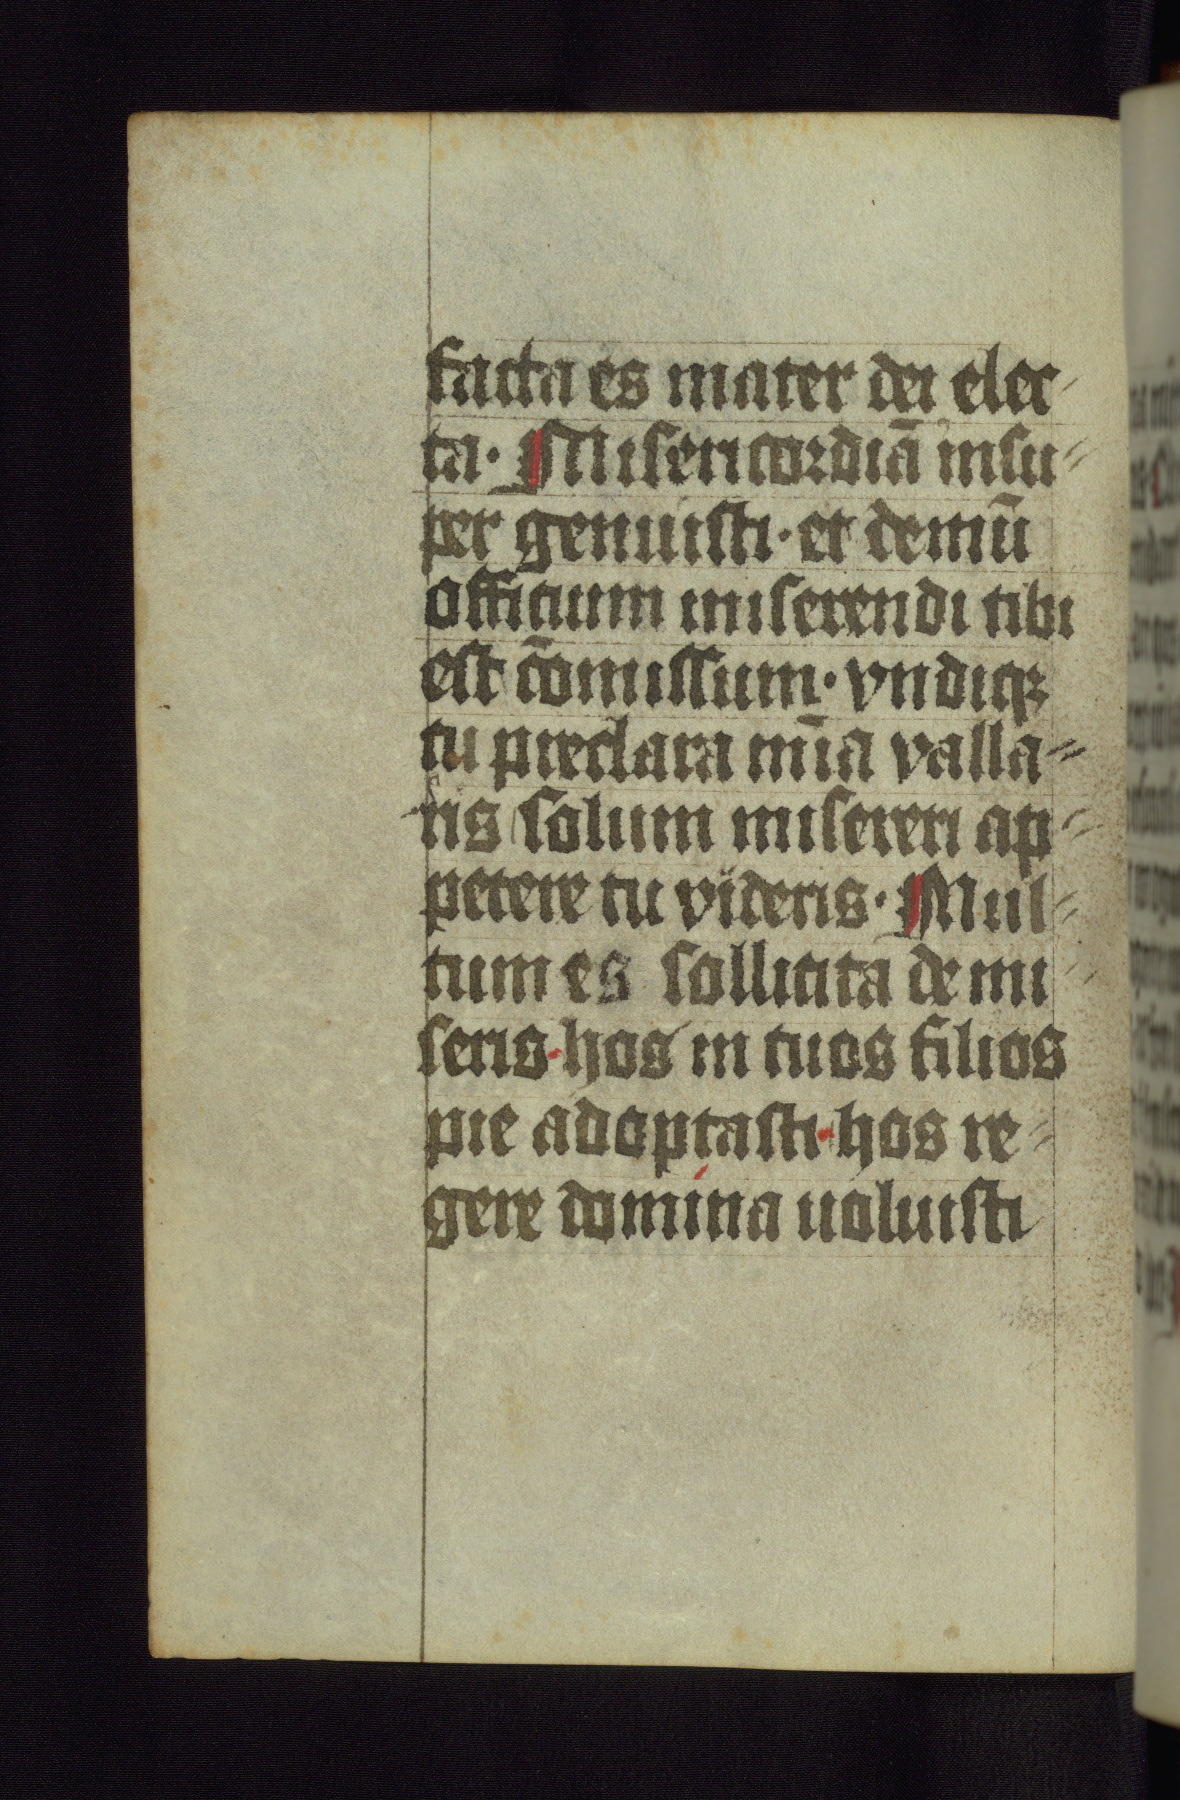 facta es mater dei elec-
ta. Misericordiā insu-
per genuisti. et demū
officium miserendi tibi
est cōmissum. vndiqꝫ
tu preclara mīa valla-
ris solum misereri ap-
petere tu videris. Mul-
tum es sollicita de mi-
seris. hos in tuos filios
pie adoptasti. hos re-
gere domina uoluisti